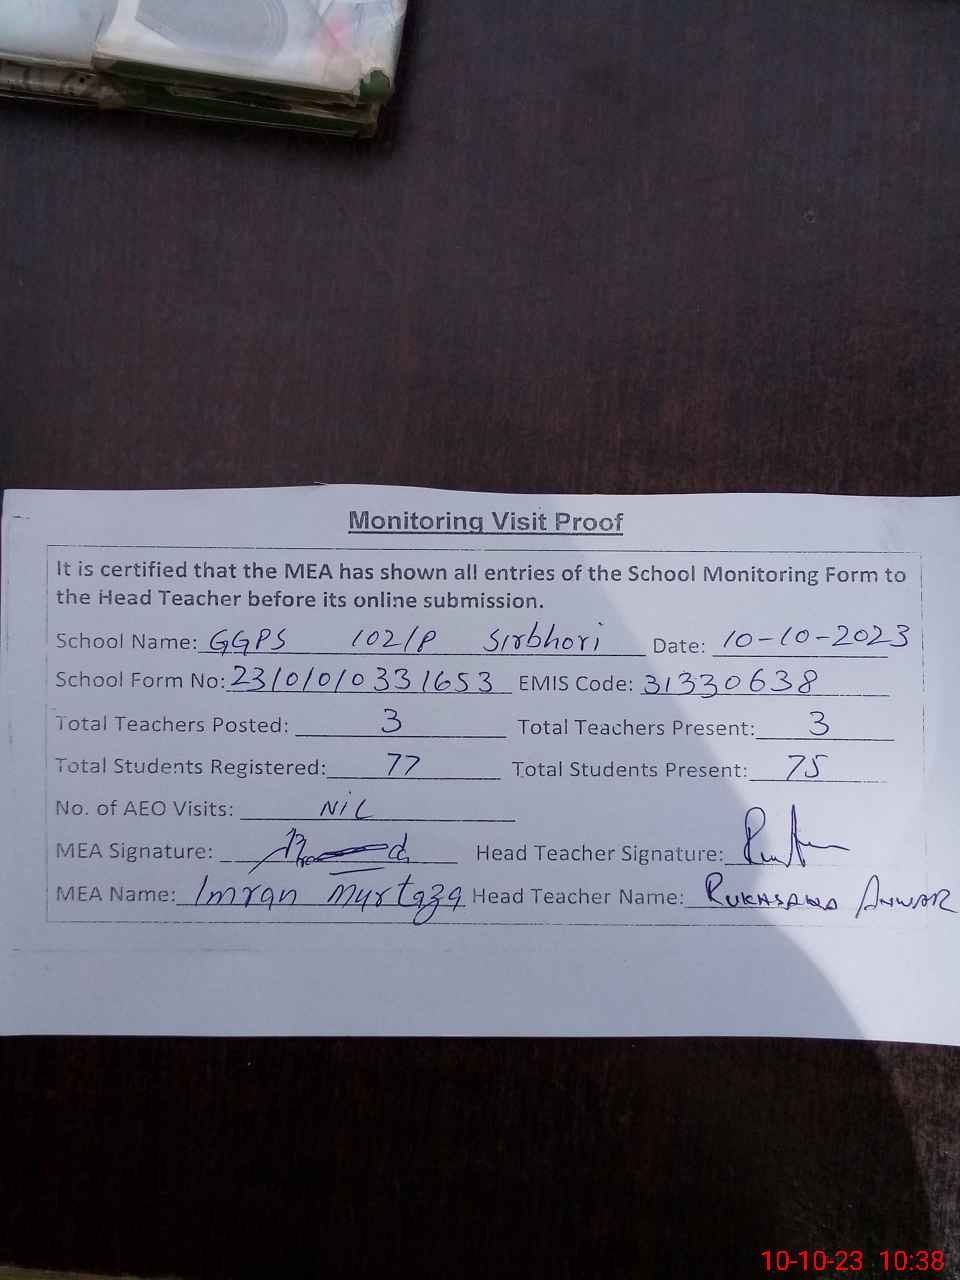 Monitoring Visit Proof
It is certified that the MEA has shown all entries of the School Monitoring Form to
the Head Teacher before its online submission.
School Name: GGPS 102/P Sirbhori Date: 10-10-2023
School Form No: 23101010331653 EMIS Code: 31330638
Total Teachers Posted: 3 Total Teachers Present: 3
Total Students Registered: 77 Total Students Present: 75
No. of AEO Visits: NiL
MEA Signature: Head Teacher Signature:
MEA Name: Imran Murtaza Head Teacher Name: RUKHSANA ANWAR
10-10-23 10:38